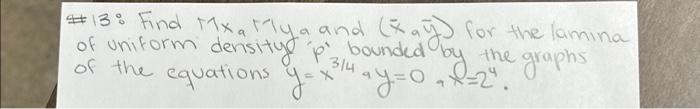 #13: Find Mx, My, and (x̄, ȳ) for the lamina
of uniform density "p" bounded by the graphs
of the equations y = x^3/4, y=0, x=2⁴.